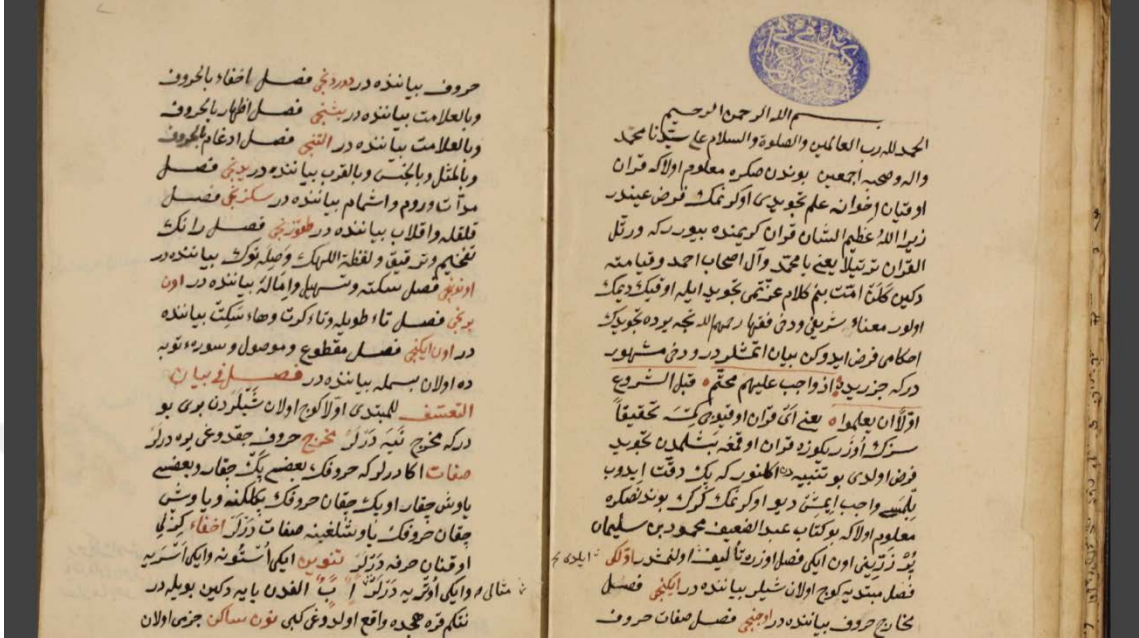 بسم الله الرحمن الرحيم
الحمد لله رب العالمين والصلوة والسلام على سيدنا محمد
واله وصحبه اجمعين بوندن صكره معلوم اولاكه قران
اوقيان اخوانه علم تجويدى اوكرنمك فرض عيندر
زيرا الله عظيم الشان قران كريمنده بيوررکه ورتل
القران ترتيلا يعنى يا محمد وآل اصحاب احمد وقيامته
دكين كلن امت بنم كلام عزتمى تجويد ايله اوقيك ديمك
اولور معناى شريفى ودخى فقها رحمهم الله نجه يرده تجويدك
احكامى فرض ايدوكن بيان اتمشلردر ودخى مشهور
درکه جزريده اذ واجب عليهم محتم قبل الشروع
اولا ان يعلموا يعنى اى قران اوقيوجى تحقيقا
سزك اوزريكوزه قران اوقمغه بشلمدن تجويد
فرض اولدى بو تنبيهده اكلنوركه پك دقت ايدوب
بلمسى واجب ايمش ديو اوكرنمك كرك بوندنصكره
معلوم اولاكه بو كتاب عبد الضعيف محمود بن سليمان
اون ايكى فصل اوزره تأليف اولنمشدر اولكى
فصل مبتديه كوج اولان شيلر بياننده در ايكنجى فصل
مخارج حروف بياننده در اوجنجى فصل صفات حروف
حروف بياننده در دوردنجى فصل اخفاء بالحروف
وبالعلامت بياننده در بشنجى فصل اظهار بالحروف
وبالعلامت بياننده در التنجى فصل ادغام بالحروف
وبالمثل وبالجنس وبالقرب بياننده در يدنجى فصل
مدات وروم واشمام بياننده در سكزنجى فصل
قلقله واقلاب بياننده در طقوزنجى فصل رانك
تفخيم وترقيق ولفظة اللهك وصله نوك بياننده در
اوننجى فصل سكته وتسهيل واماله بياننده در اون
برنجى فصل تاء طويله وتاء كرت وهاء سكت بياننده
در اون ايكنجى فصل مقطوع وموصول وسورهء توبه
ده اولان بسمله بياننده در فصل فى بيان
التعسف للمبتدى اولا كوج اولان شيلردن برى بو
درکه مخرج نيه درلر مخرج حروف چقدوغى يره درلر
صفات اكا درلركه حروفك بعضى پك چقار وبعضى
ياوش چقار اوپك چقان حروفك پكلكنه وياوش
چقان حروفك ياوشلغينه صفات درلر اخفاء كيزلى
اوقنان حرفه درلر تنوين ايكى استونه وايكى اسريه
وايكى اوتريه درلر اً بٍ بٌ الفدن يايه دكين بويله در
تتكم قره هجه ده واقع اولدوغى كبى نون ساكن جزمى اولان